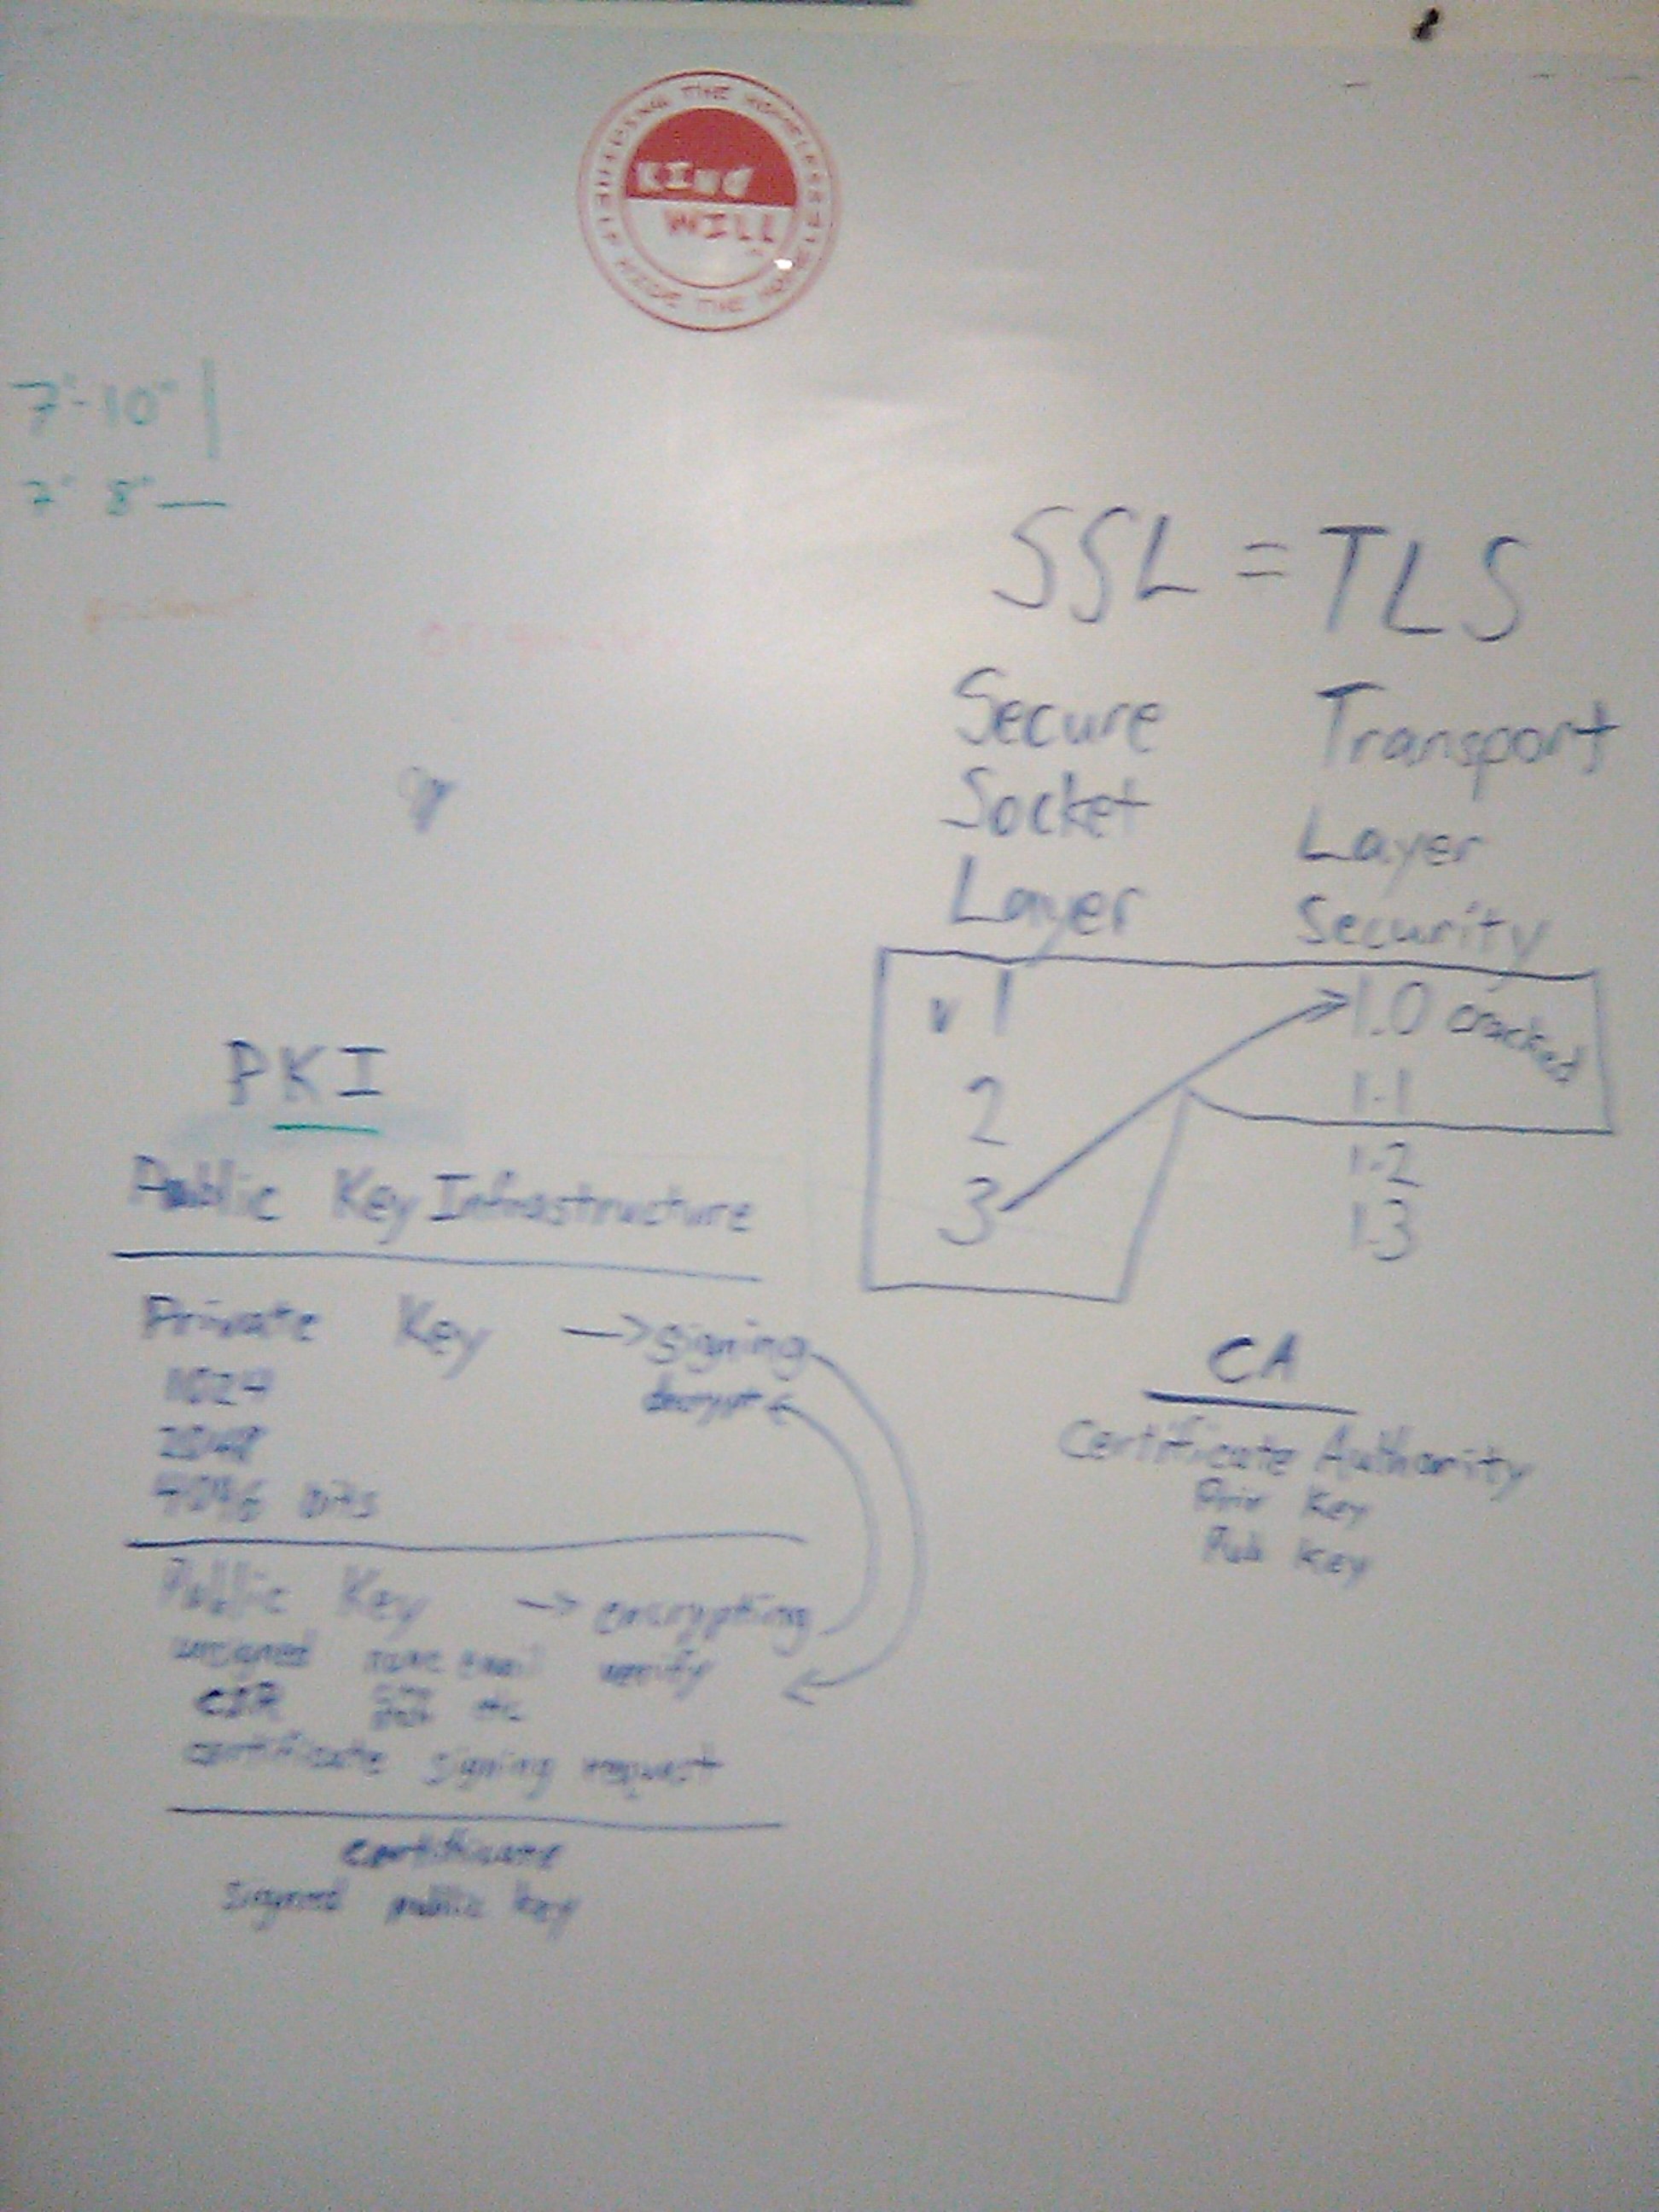 KIND
WILL
7" 10"
7" 8"
SSL = TLS
Secure
Socket
Layer
Transport
Layer
Security
v 1
2
3
1.0 cracked
1.1
1.2
1.3
PKI
Public Key Infrastructure
Private Key → signing
decrypt ←
1024
2048
4096 bits
Public Key → encrypting
unsigned name email verify
CSR etc
certificate signing request
certificate
signed public key
CA
Certificate Authority
Priv Key
Pub Key